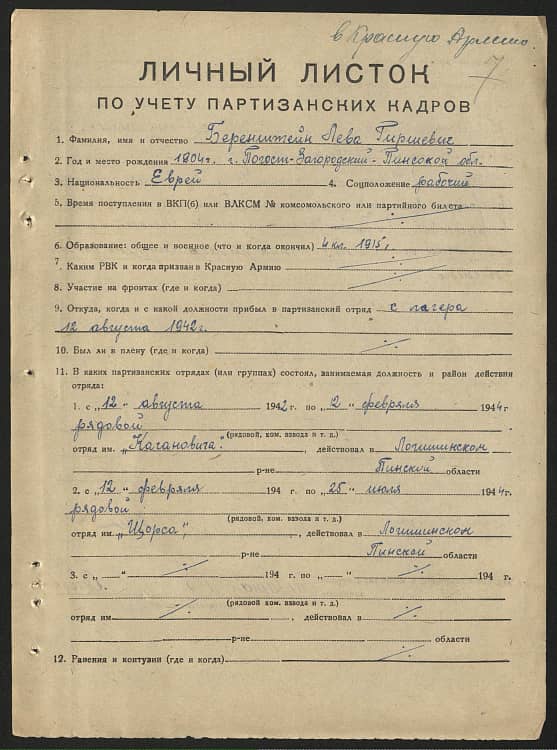 в Красную Армию.
7
ЛИЧНЫЙ ЛИСТОК
ПО УЧЕТУ ПАРТИЗАНСКИХ КАДРОВ
1. Фамилия, имя и отчество Беренштейн Лева Гиршевич
2. Год и место рождения 1904г. г. Погост-Загородский-Пинской обл.
3. Национальность Еврей 4. Соцположение рабочий
5. Время поступления в ВКП(б) или ВЛКСМ № комсомольского или партийного билета
6. Образование: общее и военное (что и когда окончил) 4 кл. 1915г.
7. Каким РВК и когда призван в Красную Армию
8. Участие на фронтах (где и когда)
9. Откуда, когда и с какой должности прибыл в партизанский отряд с лагера
12 августа 1942г.
10. Был ли в плену (где и когда)
11. В каких партизанских отрядах (или группах) состоял, занимаемая должность и район действия
отряда:
1. с „12“ августа 1942г. по „2“ февряля 1944г
рядовой
(рядовой, ком. взвода и т. д.)
отряд им. „Кагановича“, действовал в Логишинском
р-не Пинской области
2. с „12“ февряля 194 г. по „25“ июля 1944г.
рядовой
(рядовой, ком. взвода и т. д.)
отряд им. „Щорса“, действовал в Логишинском
р-не Пинской области
3. с „ “ 194 г. по „ “ 194 г.
(рядовой ком. взвода и т. д.)
отряд им , действовал в
р-не области
12. Ранения и контузии (где и когда)